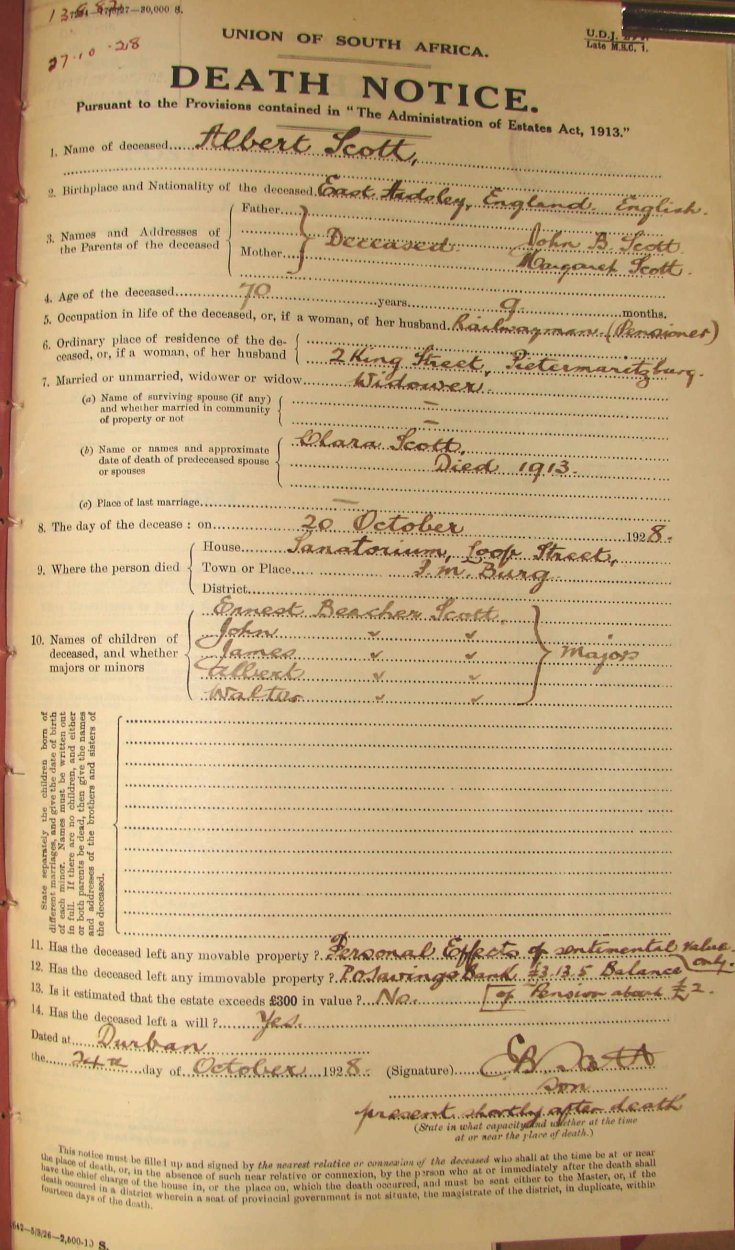 27.10.28
UNION OF SOUTH AFRICA.
U.D.J.
Late M.S.C. 1.
DEATH NOTICE.
Pursuant to the Provisions contained in "The Administration of Estates Act, 1913."
1. Name of deceased Albert Scott,
2. Birthplace and Nationality of the deceased East Ardsley, England. English.
3. Names and Addresses of the Parents of the deceased
Father
Mother
Deceased John B. Scott
Margaret Scott.
4. Age of the deceased 70 years 9 months.
5. Occupation in life of the deceased, or, if a woman, of her husband Railwayman (Pensioner)
6. Ordinary place of residence of the de-
ceased, or, if a woman, of her husband
2 King Street, Pietermaritzburg.
7. Married or unmarried, widower or widow Widower.
(a) Name of surviving spouse (if any)
and whether married in community
of property or not
(b) Name or names and approximate
date of death of predeceased spouse
or spouses
Clara Scott,
Died 1913.
(c) Place of last marriage —
8. The day of the decease : on 20 October 1928.
9. Where the person died
House Sanatorium, Loop Street,
Town or Place P.M. Burg
District
10. Names of children of
deceased, and whether
majors or minors
Ernest Beecher Scott.
John " "
James " "
Albert " "
Walter " "
Majors
State separately the children born of
different marriages, and give the date of birth
of each minor. Names must be written out
in full. If there are no children, and either
or both parents be dead, then give the names
and addresses of the brothers and sisters of
the deceased.
11. Has the deceased left any movable property ? Personal Effects of sentimental value only.
12. Has the deceased left any immovable property ? P.O. Savings Bank £3.13.5 Balance
13. Is it estimated that the estate exceeds £300 in value ? No. of Pension about £2.
14. Has the deceased left a will ? Yes.
Dated at Durban
the 24th day of October 1928.
(Signature)
son
present shortly after death
(State in what capacity and whether at the time
at or near the place of death.)
This notice must be filled up and signed by the nearest relative or connexion of the deceased who shall at the time be at or near
the place of death, or, in the absence of such near relative or connexion, by the person who at or immediately after the death shall
have the chief charge of the house in, or the place on, which the death occurred, and must be sent either to the Master, or, if the
death occured in a district wherein a seat of provincial government is not situate, the magistrate of the district, in duplicate, within
fourteen days of the death.